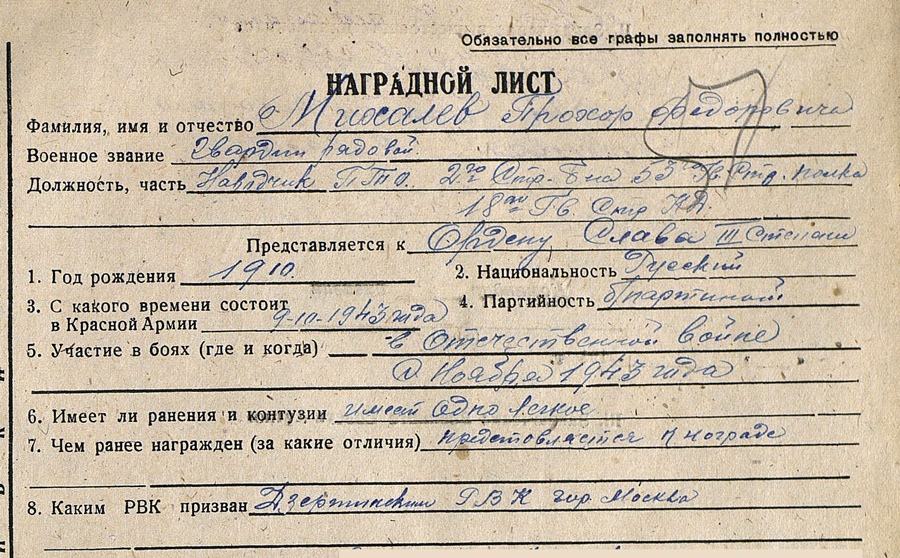 Обязательно все графы заполнять полностью
НАГРАДНОЙ ЛИСТ
Фамилия, имя и отчество Михалев Прохор Федорович
Военное звание Гвардии рядовой.
Должность, часть Наводчик ПТО. 2го Стр. б-на 53го Гв. Стр. полка
18ой Гв. Стр
Представляется к Ордену Слава III Степени
1. Год рождения 1910.
2. Национальность Русский
3. С какого времени состоит
в Красной Армии 9-10-1943 года
4. Партийность б/партийный
5. Участие в боях (где и когда) в Отечественной войне
с Ноября 1943 года
6. Имеет ли ранения и контузии имеет одно легкое
7. Чем ранее награжден (за какие отличия) представляется к награде
8. Каким РВК призван Дзержинским РВК гор. Москва